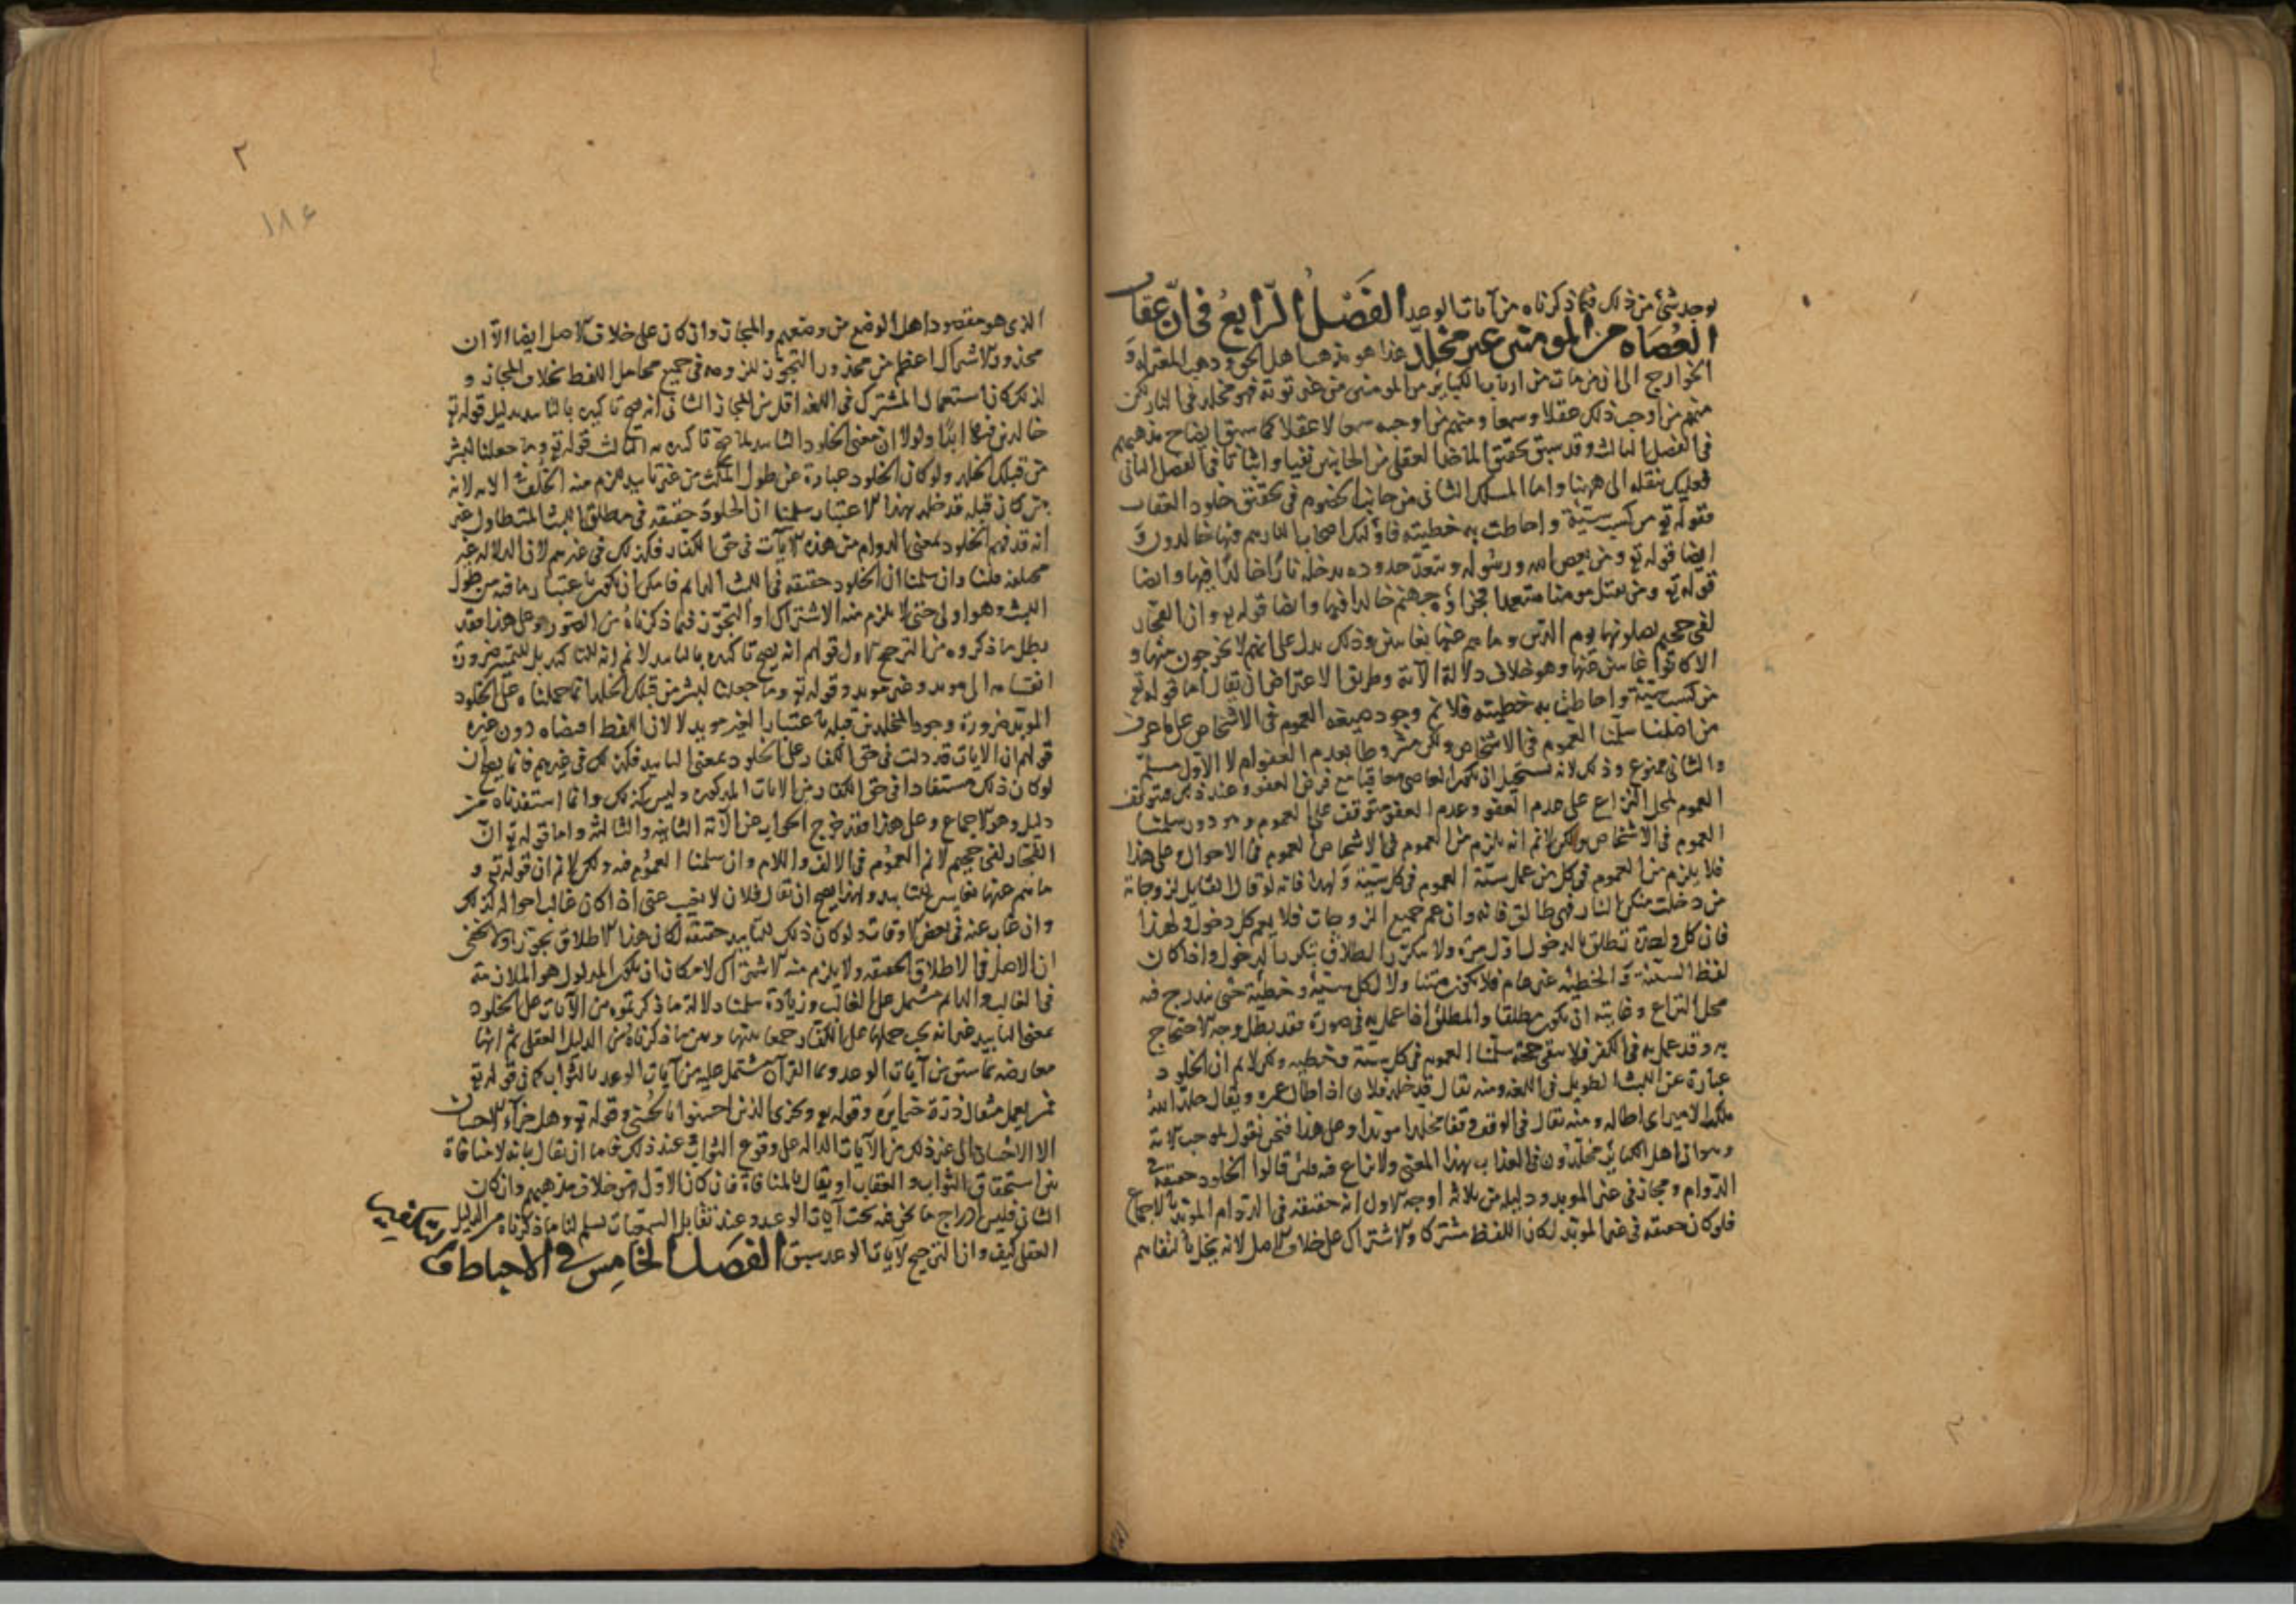 يوجد شئ من ذلك فيما ذكرناه من آيات الوعيد الفصل الرابع في ان عقاب
العصاه من المومنين غير مخلد هذا هو مذهب اهل الحق وذهب المعتزلة و
الخوارج الى ان من مات من ارباب الكباير من المومنين من غير توبة فهو مخلد في النار لكن
منهم من اوجب ذلك عقلا وسمعا ومنهم من اوجبه سمعا لا عقلا كما سبق ايضاح مذهبهم
في الفصل الثالث وقد سبق تحقيق الماخذ العقلي من الجانبين نفيا واثباتا في الفصل الثاني
فعليك بنقله الى هٰهنا واما المسلك الثاني من جانب الخصوم في تحقيق خلود العقاب
فقوله تع من كسب سيئة واحاطت به خطيته فاولئك اصحاب النار هم فيها خالدون و
ايضا قوله تع ومن يعص الله ورسوله ويتعد حدوده يدخله نارا خالدا فيها وايضا
قوله تع ومن يقتل مومنا متعمدا فجزاؤه جهنم خالدا فيها وايضا قوله تع وان الفجار
لفي جحيم يصلونها يوم الدين وما هم عنها بغايبين وذلك يدل على انهم لا يخرجون منها و
الا كانوا غايبين عنها وهو خلاف دلالة الآية وطريق الاعتراض ان يقال اما قوله تع
من كسب سيئة واحاطت به خطيته فلا نم وجود صيغة العموم في الاشخاص على ما عرف
من اصلنا سلمنا العموم في الاشخاص ولكن مشروطا بعدم العفو ام لا الاول مسلم
والثاني ممنوع وذلك لانه يستحيل ان يكون العاصي معاقبا مع فرض العفو وعند ذلك فتوقف
العموم لمحل النزاع على عدم العفو وعدم العفو متوقف على العموم وهو دور سلمنا
العموم في الاشخاص ولكن لا نم انه يلزم من العموم في الاشخاص العموم في الاحوال وعلى هذا
فلا يلزم من العموم في كل من عمل سيئة العموم في كل سيئة ولهذا فانه لو قال القايل لزوجاته
من دخلت منكن الدار فهي طالق فانه وان عم جميع الزوجات فلا يعم كل دخول ولهذا
فان كل واحدة تطلق بالدخول اول مرة ولا يتكرر الطلاق بتكرر الدخول واذا كان
لفظ السيئة والخطية غير عام فلا يكون متناولا لكل سيئة وخطية حتى يندرج فيه
محل النزاع وغايته ان يكون مطلقا والمطلق اذا عمل به في صورة فقد بطل وجه الاحتجاج
به وقد عمل به في الكفر فلا يبقى حجة سلمنا العموم في كل سيئة وخطية ولكن لا نم ان الخلود
عبارة عن اللبث الطويل في اللغة ومنه يقال قد خلد فلان اذا طال عمره ويقال خلد الله
ملك الامير اي اطاله ومنه يقال في الوقف وقفا مخلدا موبدا وعلى هذا فنحن نقول بموجب الاية
وهو ان اهل الكباير مخلدون في العذاب بهذا المعنى ولا نزاع فيه فلئن قالوا الخلود حقيقة في
الدوام ومجاز في غير الموبد ودليله من ثلاثة اوجه الاول انه حقيقة في الدوام الموبد بالاجماع
فلو كان حقيقة في غير الموبد لكان اللفظ مشتركا والاشتراك على خلاف الاصل لانه يخل بالتفاهم
٢
١٨٤
الذي هو مقصود اهل الوضع من وضعهم والمجاز وان كان على خلاف الاصل ايضا الا ان
محذور الاشتراك اعظم من محذور التجوز للزومه في جميع محامل اللفظ بخلاف المجاز و
لذلك كان استعمال المشترك في اللغه اقل من المجاز الثاني انه يصح تاكيده بالتابيد بدليل قوله تع
خالدين فيها ابدا ولولا ان معنى الخلود التابيد لما صح تاكيده به الثالث قوله تع وما جعلنا لبشر
من قبلك الخلد ولو كان الخلود عبارة عن طول المكث من غير تابيد لزم منه الخلف في الاية لانه
من كان قبله قد خلد بهذا الاعتبار سلمنا ان الخلود حقيقة في مطلق اللبث المتطاول غير
انه قد فهم الخلود بمعنى الدوام من هذه الايات في حق الكفار فكذلك في غيرهم لان الدلالة غير
مختلفة قلنا وان سلمنا ان الخلود حقيقة في اللبث الدايم فامكن ان يكون باعتبار ما فيه من طول
اللبث وهو اولى حتى لا يلزم منه الاشتراك او التجوز فيما ذكرناه من الصور وعلى هذا فقد
بطل ما ذكروه من الترجيح الاول قولهم انه يصح تاكيده بالتابيد لا نم انه للتاكيد بل للتمييز ضرورة
انقسامه الى موبد وغير موبد وقوله تع وما جعلنا لبشر من قبلك الخلد انما حملناه على الخلود
الموبد ضرورة وجود المخلدين قبله باعتبار الغير موبد لا لان اللفظ اقتضاه دون غيره
قولهم ان الايات قد دلت في حق الكفار على الخلود بمعنى التابيد فكذلك في غيرهم فانما يصح ان
لو كان ذلك مستفادا في حق الكفار من الايات المذكورة وليس كذلك وانما استفدناه من
دليل وهو الاجماع وعلى هذا فقد خرج الجواب عن الآية الثانية والثالثة واما قوله تع ان
الفجار لفي جحيم لا نم العموم في الالف واللام وان سلمنا العموم فيه ولكن لا نم ان قوله تع و
ما هم عنها بغايبين للتابيد ولهذا يصح ان يقال فلان لا يغيب عني اذا كان غالب احواله كذلك
وان غاب عنه في بعض الاوقات ولو كان ذلك للتابيد حقيقة لكان هذا الاطلاق تجوزا ولا يخفى
ان الاصل في الاطلاق الحقيقة ولا يلزم منه الاشتراك لامكان ان يكون المدلول هو الملازمة
في الغالب والدايم مشتمل على الغالب وزيادة سلمنا دلالة ما ذكرتموه من الآيات على الخلود
بمعنى التابيد غير انه يجب حملها على الكفار جمعا بينها وبين ما ذكرناه من الدليل العقلي ثم انها
معارضة بما سبق من آيات الوعد وبما القرآن مشتمل عليه من آيات الوعد بالثواب كما في قوله تع
فمن يعمل مثقال ذرة خيرا يره وقوله تع ويجزي الذين احسنوا بالحسنى وقوله تع وهل جزاء الاحسان
الا الاحسان الى غير ذلك من الآيات الدالة على وقوع الثواب عند ذلك فاما ان يقال بانه لا منافاة
بين استحقاق الثواب والعقاب او يقال بالمنافاة فان كان الاول فهو خلاف مذهبهم وان كان
الثاني فليس ادراج ما نحن فيه تحت آيات الوعيد وعند تقابل السمعيات يسلم لنا ما ذكرناه من الدليل
العقلي كيف وان الترجيح لآيات الوعد سبق الفصل الخامس في الاحباط و